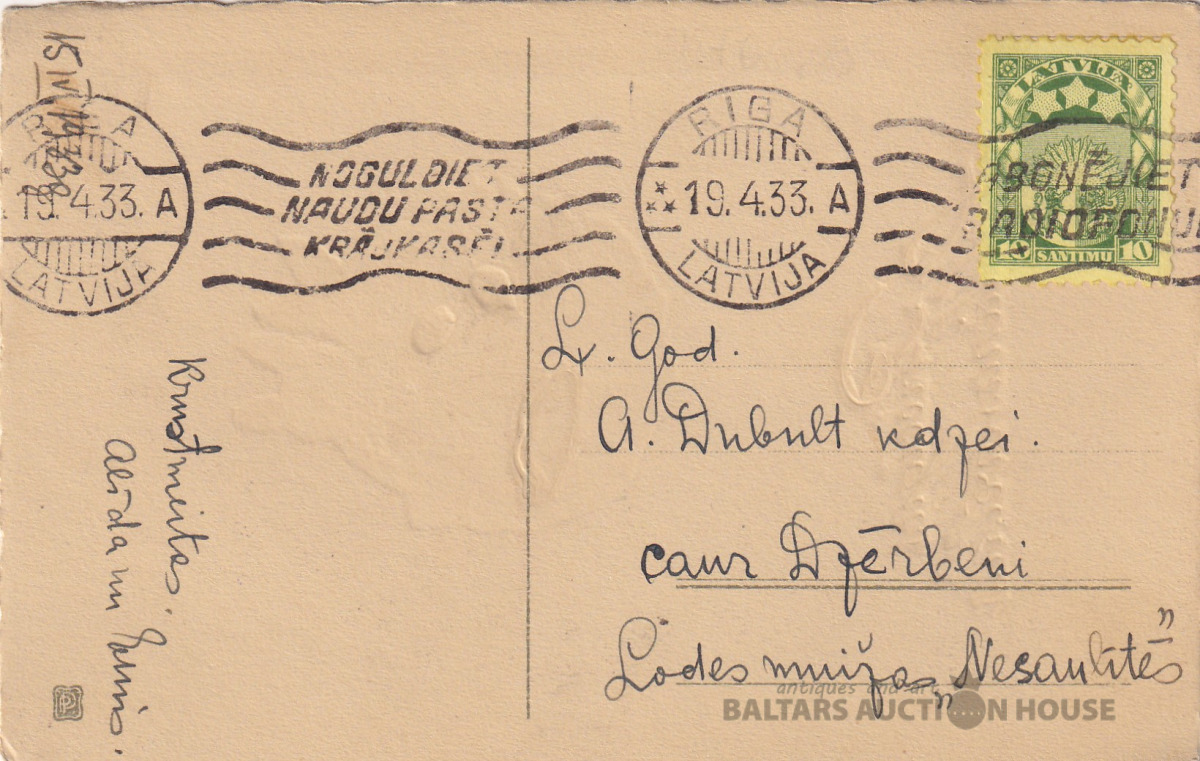 15 IV 1933g
RIGA
19.4.33. A
LATVIJA
NOGULDIET
NAUDU PASTA
KRĀJKASĒ!
RIGA
19.4.33. A
LATVIJA
LATVIJA
ABONĒJIET
RADIOFONU
10 SANTIMU 10
Krustmeitas.
Alīda un
Lr. God.
A. Dubult kdzei.
caur Dzērbeni
Lodes muižas „Nesaulītēs"
antiques and art
BALTARS AUCTION HOUSE